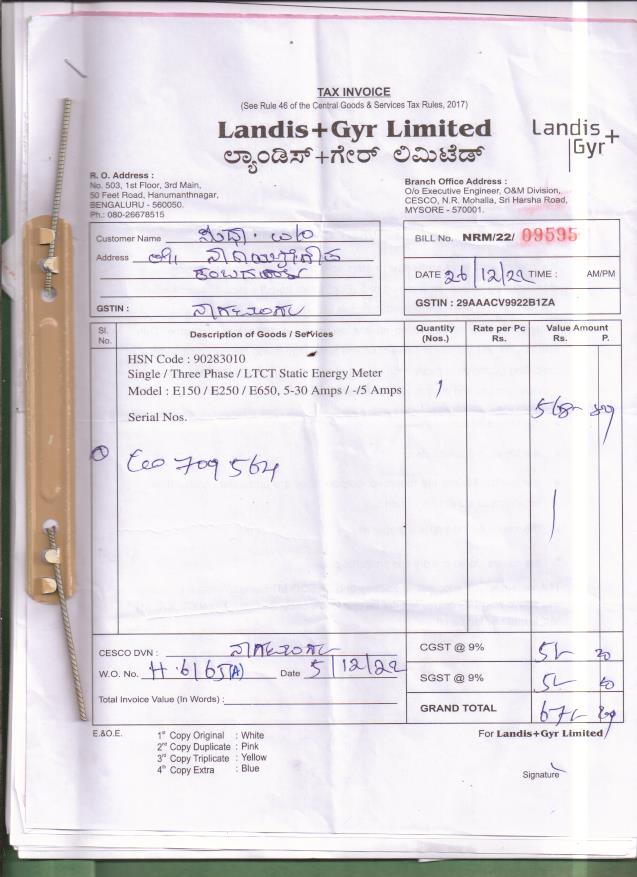 TAX INVOICE
(See Rule 46 of the Central Goods & Services Tax Rules, 2017)
Landis+Gyr Limited
ಲ್ಯಾಂಡಿಸ್+ಗೇರ್ ಲಿಮಿಟೆಡ್
Landis+
Gyr
R. O. Address :
No. 503, 1st Floor, 3rd Main,
50 Feet Road, Hanumanthnagar,
BENGALURU - 560050.
Ph.: 080-26678515
Branch Office Address :
O/o Executive Engineer, O&M Division,
CESCO, N.R. Mohalla, Sri Harsha Road,
MYSORE - 570001.
Customer Name
Address
GSTIN : ನಾಗಮಂಗಲ
BILL No. NRM/22/ 09595
DATE 26/12/22 TIME : AM/PM
GSTIN : 29AAACV9922B1ZA
Sl. No. Description of Goods / Services Quantity (Nos.) Rate per Pc Rs. Value Amount Rs. P.
HSN Code : 90283010
Single / Three Phase / LTCT Static Energy Meter
Model : E150 / E250 / E650, 5-30 Amps / -/5 Amps 1
Serial Nos.
709564
CESCO DVN : ನಾಗಮಂಗಲ
W.O. No. Date 5/12/22
Total Invoice Value (In Words) :
CGST @ 9%
SGST @ 9%
GRAND TOTAL
E.&O.E.
1st Copy Original : White
2nd Copy Duplicate : Pink
3rd Copy Triplicate : Yellow
4th Copy Extra : Blue
For Landis+Gyr Limited
Signature